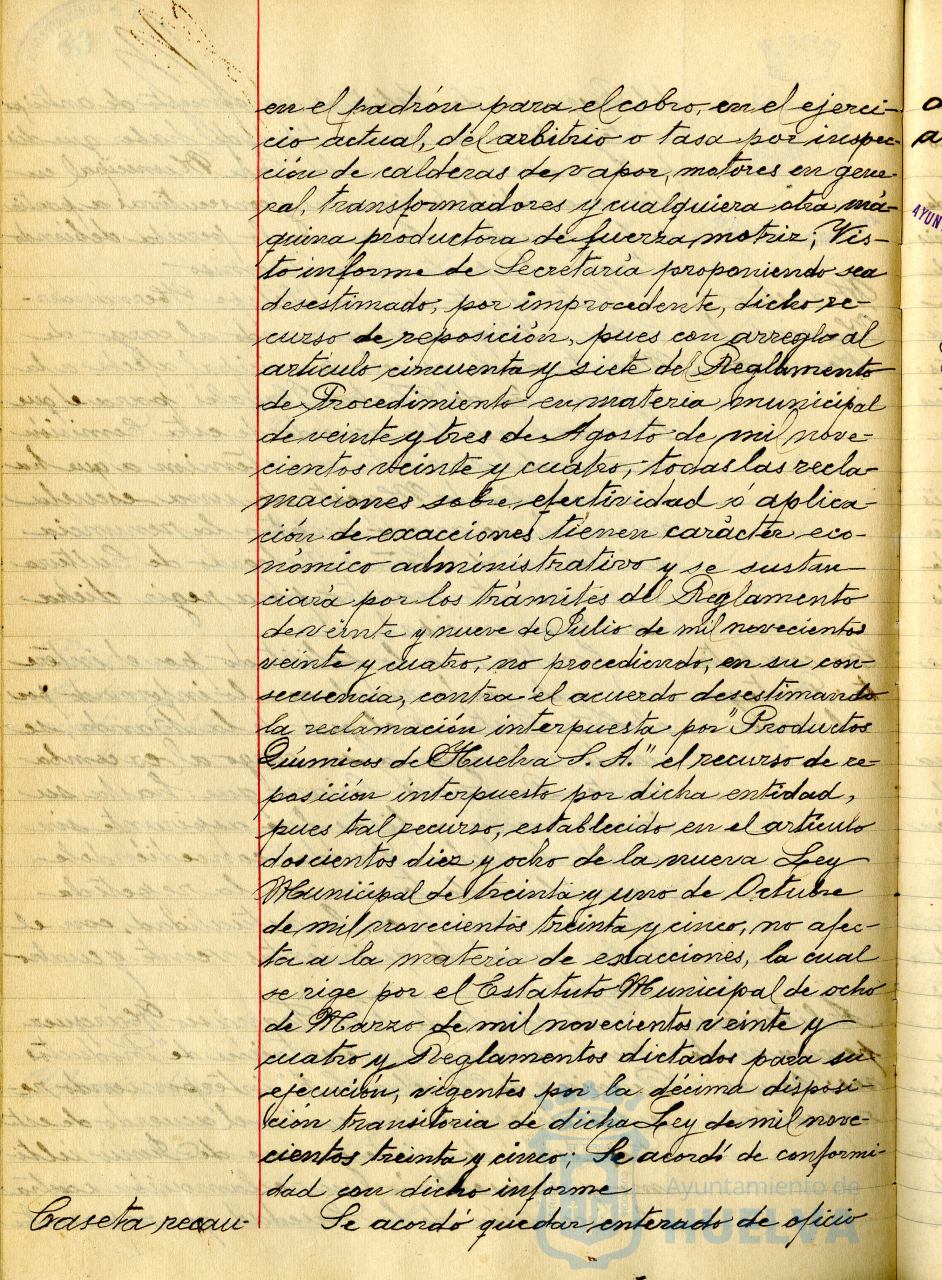 en el padrón para el cobro, en el ejerci-
cio actual, del arbitrio o tasa por inspec-
ción de calderas de vapor, motores en gene-
ral, transformadores y cualquiera otra má-
quina productora de fuerza motriz; Vis-
to informe de Secretaría proponiendo sea
desestimado, por improcedente, dicho re-
curso de reposición, pues con arreglo al
artículo cincuenta y siete del Reglamento
de Procedimiento en materia municipal
de veinte y tres de Agosto de mil nove-
cientos veinte y cuatro, todas las recla-
maciones sobre efectividad ó aplica-
ción de exacciones tienen carácter eco-
nómico administrativo y se sustan-
ciará por los trámites del Reglamento
de veinte y nueve de Julio de mil novecientos
veinte y cuatro, no procediendo, en su con-
secuencia, contra el acuerdo desestimando
la reclamación interpuesta por "Productos
Químicos de Huelva S. A." el recurso de re-
posición interpuesto por dicha entidad,
pues tal recurso, establecido en el artículo
doscientos diez y ocho de la nueva Ley
Municipal de treinta y uno de Octubre
de mil novecientos treinta y cinco, no afec-
ta a la materia de exacciones, la cual
se rige por el Estatuto Municipal de ocho
de Marzo de mil novecientos veinte y
cuatro y Reglamentos dictados para su
ejecución, vigentes por la décima disposi-
ción transitoria de dicha Ley de mil nove-
cientos treinta y cinco; Se acordó de conformi-
dad con dicho informe
Caseta recau- Se acordó quedar enterado de oficio
Ayuntamiento de
HUELVA
AYUN